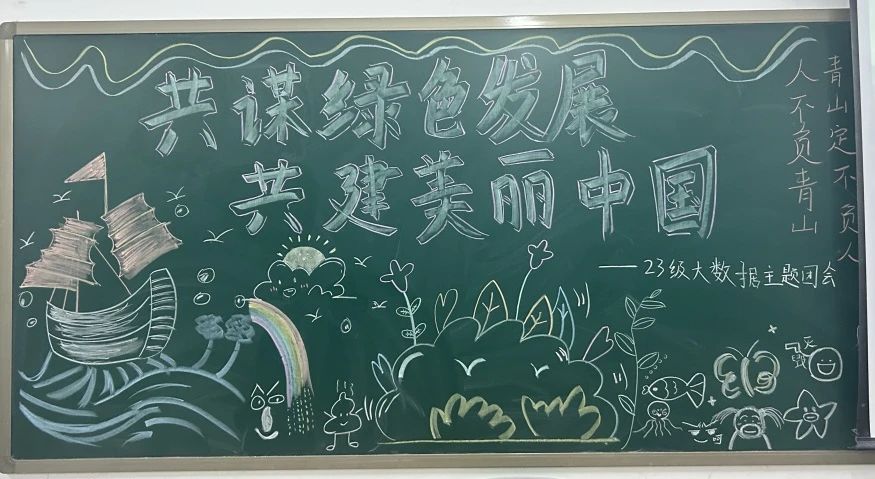 共谋绿色发展
共建美丽中国
——23级大数据主题团会
人不负青山
青山定不负人
灭
毁
呵